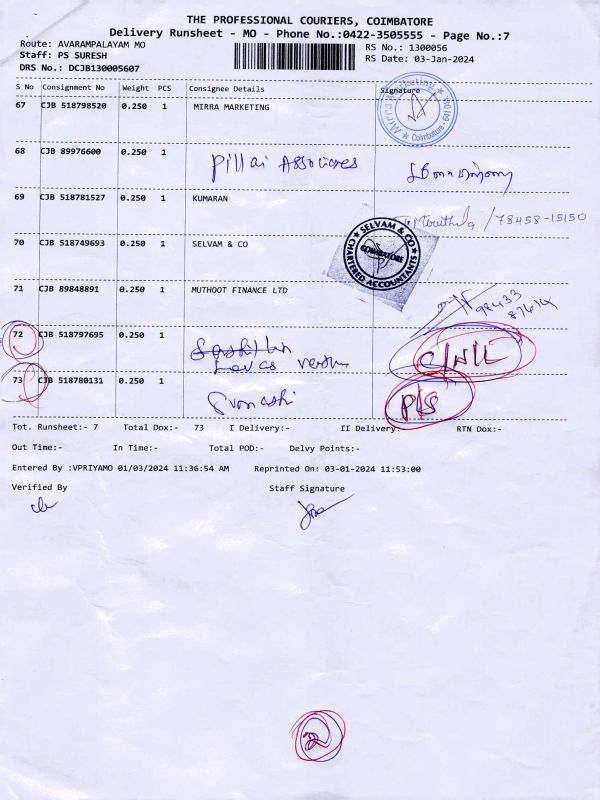 THE PROFESSIONAL COURIERS, COIMBATORE
Delivery Runsheet - MO - Phone No.:0422-3505555 - Page No.:7
Route: AVARAMPALAYAM MO
RS No.: 1300056
Staff: PS SURESH
RS Date: 03-Jan-2024
DRS No.: DCJB130005607
S No Consignment No Weight PCS Consignee Details Signature
67 CJB 518798520 0.250 1 MIRRA MARKETING
Coimbatore
68 CJB 89976600 0.250 1 Pillai Associates
69 CJB 518781527 0.250 1 KUMARAN
/78458-15150
70 CJB 518749693 0.250 1 SELVAM & CO
SELVAM & CO
COIMBATORE
CHARTERED ACCOUNTANTS
71 CJB 89848891 0.250 1 MUTHOOT FINANCE LTD
98433
72 CJB 518797695 0.250 1
73 CJB 518780131 0.250 1 P/S
Tot. Runsheet:- 7 Total Dox:- 73 I Delivery:- II Delivery:- RTN Dox:-
Out Time:- In Time:- Total POD:- Delvy Points:-
Entered By :VPRIYAMO 01/03/2024 11:36:54 AM Reprinted On: 03-01-2024 11:53:00
Verified By Staff Signature
2